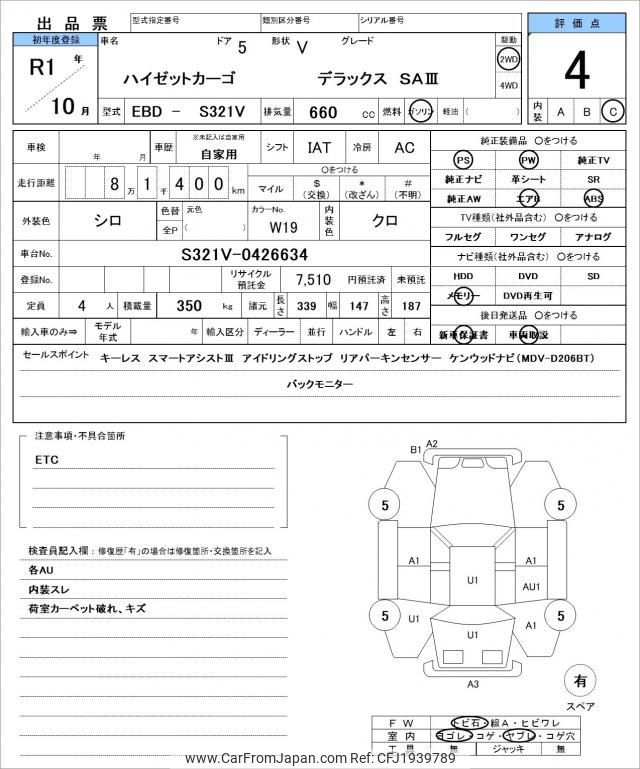 出品票 型式指定番号 類別区分番号 シリアル番号
初年度登録 車名 ドア 5 形状 V グレード 駆動 評価点
R1 年 10 月
ハイゼットカーゴ デラックス SAⅢ 2WD 4WD
4
型式 EBD - S321V 排気量 660 cc 燃料 ガソリン 軽油 ( )
内装 A B C
車検 年 月 車歴 ※未記入は自家用 自家用 シフト IAT 冷房 AC
走行距離 8 万 1 千 4 0 0 km 〇をつける マイル $ (交換) * (改ざん) # (不明)
外装色 シロ 色替 元色 全P ( ) カラーNo. W19 内装色 クロ
車台No. S321V-0426634
登録No. リサイクル預託金 7,510 円預託済 未預託
定員 4 人 積載量 350 kg 諸元 長さ 339 幅 147 高さ 187
輸入車のみ⇒ モデル年式 年 輸入区分 ディーラー 並行 ハンドル 左 右
純正装備品 〇をつける
PS PW 純正TV
純正ナビ 革シート SR
純正AW エアB ABS
TV種類(社外品含む) 〇をつける
フルセグ ワンセグ アナログ
ナビ種類(社外品含む) 〇をつける
HDD DVD SD
メモリー DVD再生可
後日発送品 〇をつける
新車保証書 車両取説
セールスポイント キーレス スマートアシストⅢ アイドリングストップ リアパーキンセンサー ケンウッドナビ(MDV-D206BT)
バックモニター
注意事項・不具合箇所
ETC
検査員記入欄：修復歴「有」の場合は修復箇所・交換箇所を記入
各AU
内装スレ
荷室カーペット破れ、キズ
B1 A2
5 5
A1 A1
U1 AU1
5 5
U1 A1
U1
A3
有
スペア
FW トビ石・線A・ヒビワレ
室内 ヨゴレ・コゲ・ヤブレ・コゲ穴
工具 無 ジャッキ 無
www.CarFromJapan.com Ref: CFJ1939789